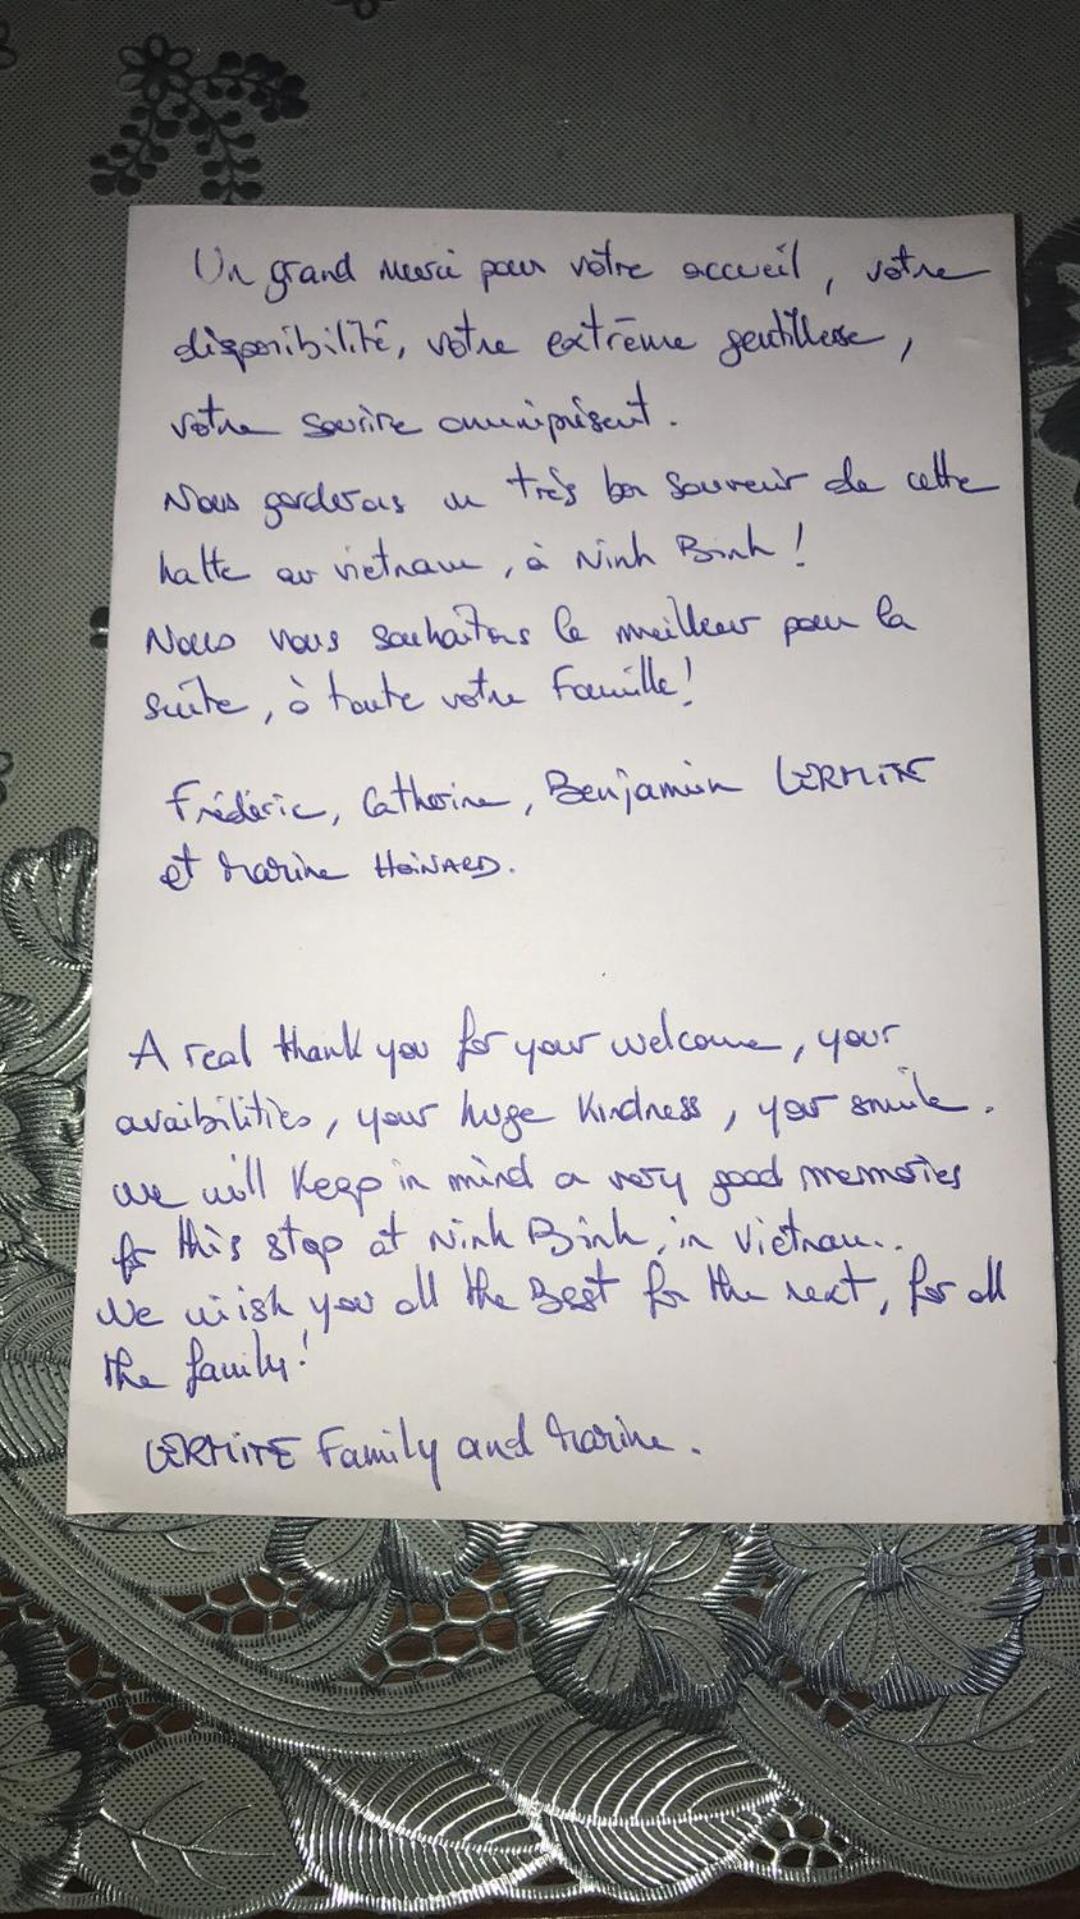 Un grand merci pour votre accueil, votre
disponibilité, votre extrême gentillesse,
votre sourire omniprésent.
Nous garderons un très bon souvenir de cette
halte au vietnam, à Ninh Binh !
Nous vous souhaitons le meilleur pour la
suite, à toute votre famille !
Frédéric, Catherine, Benjamin LERMITE
et Marine
A real thank you for your welcome, your
avaibilities, your huge kindness, your smile.
we will keep in mind a very good memories
for this stop at Ninh Binh, in Vietnam..
We wish you all the Best for the next, for all
the family !
LERMITE Family and Marine.